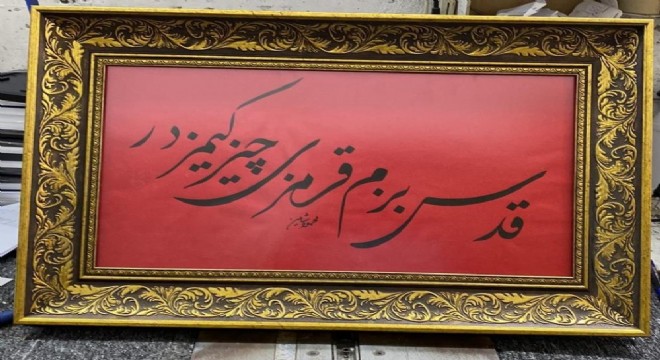 قدس بزم قرمزی چیزگیمزدر